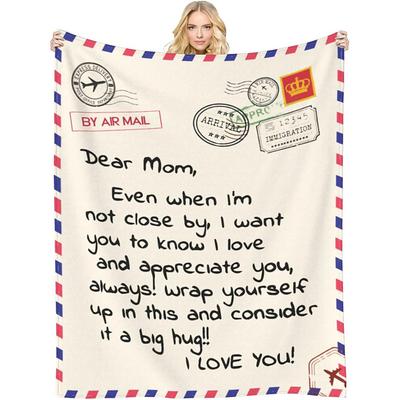 EXPRESS DELIVERY
BY AIR MAIL
ARRIVAL
12345
IMMIGRATION
Dear Mom,
Even when i'm
not close by, i want
you to know i love
and appreciate you,
always! wrap yourself
up in this and consider
it a big hug!!
i LOVE YOU!